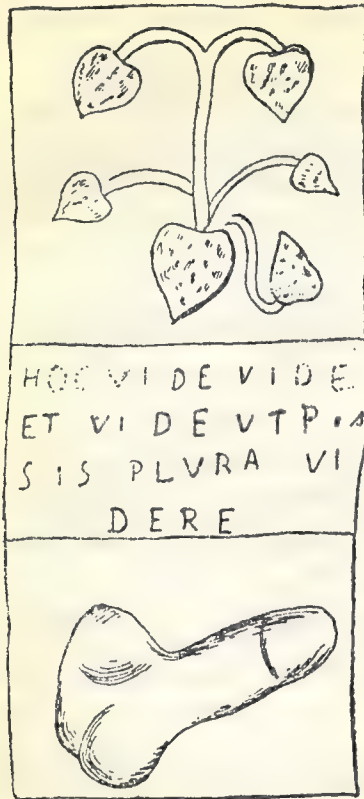 HOC VIDE VIDE
ET VIDE VT P.S
SIS PLVRA VI
DERE